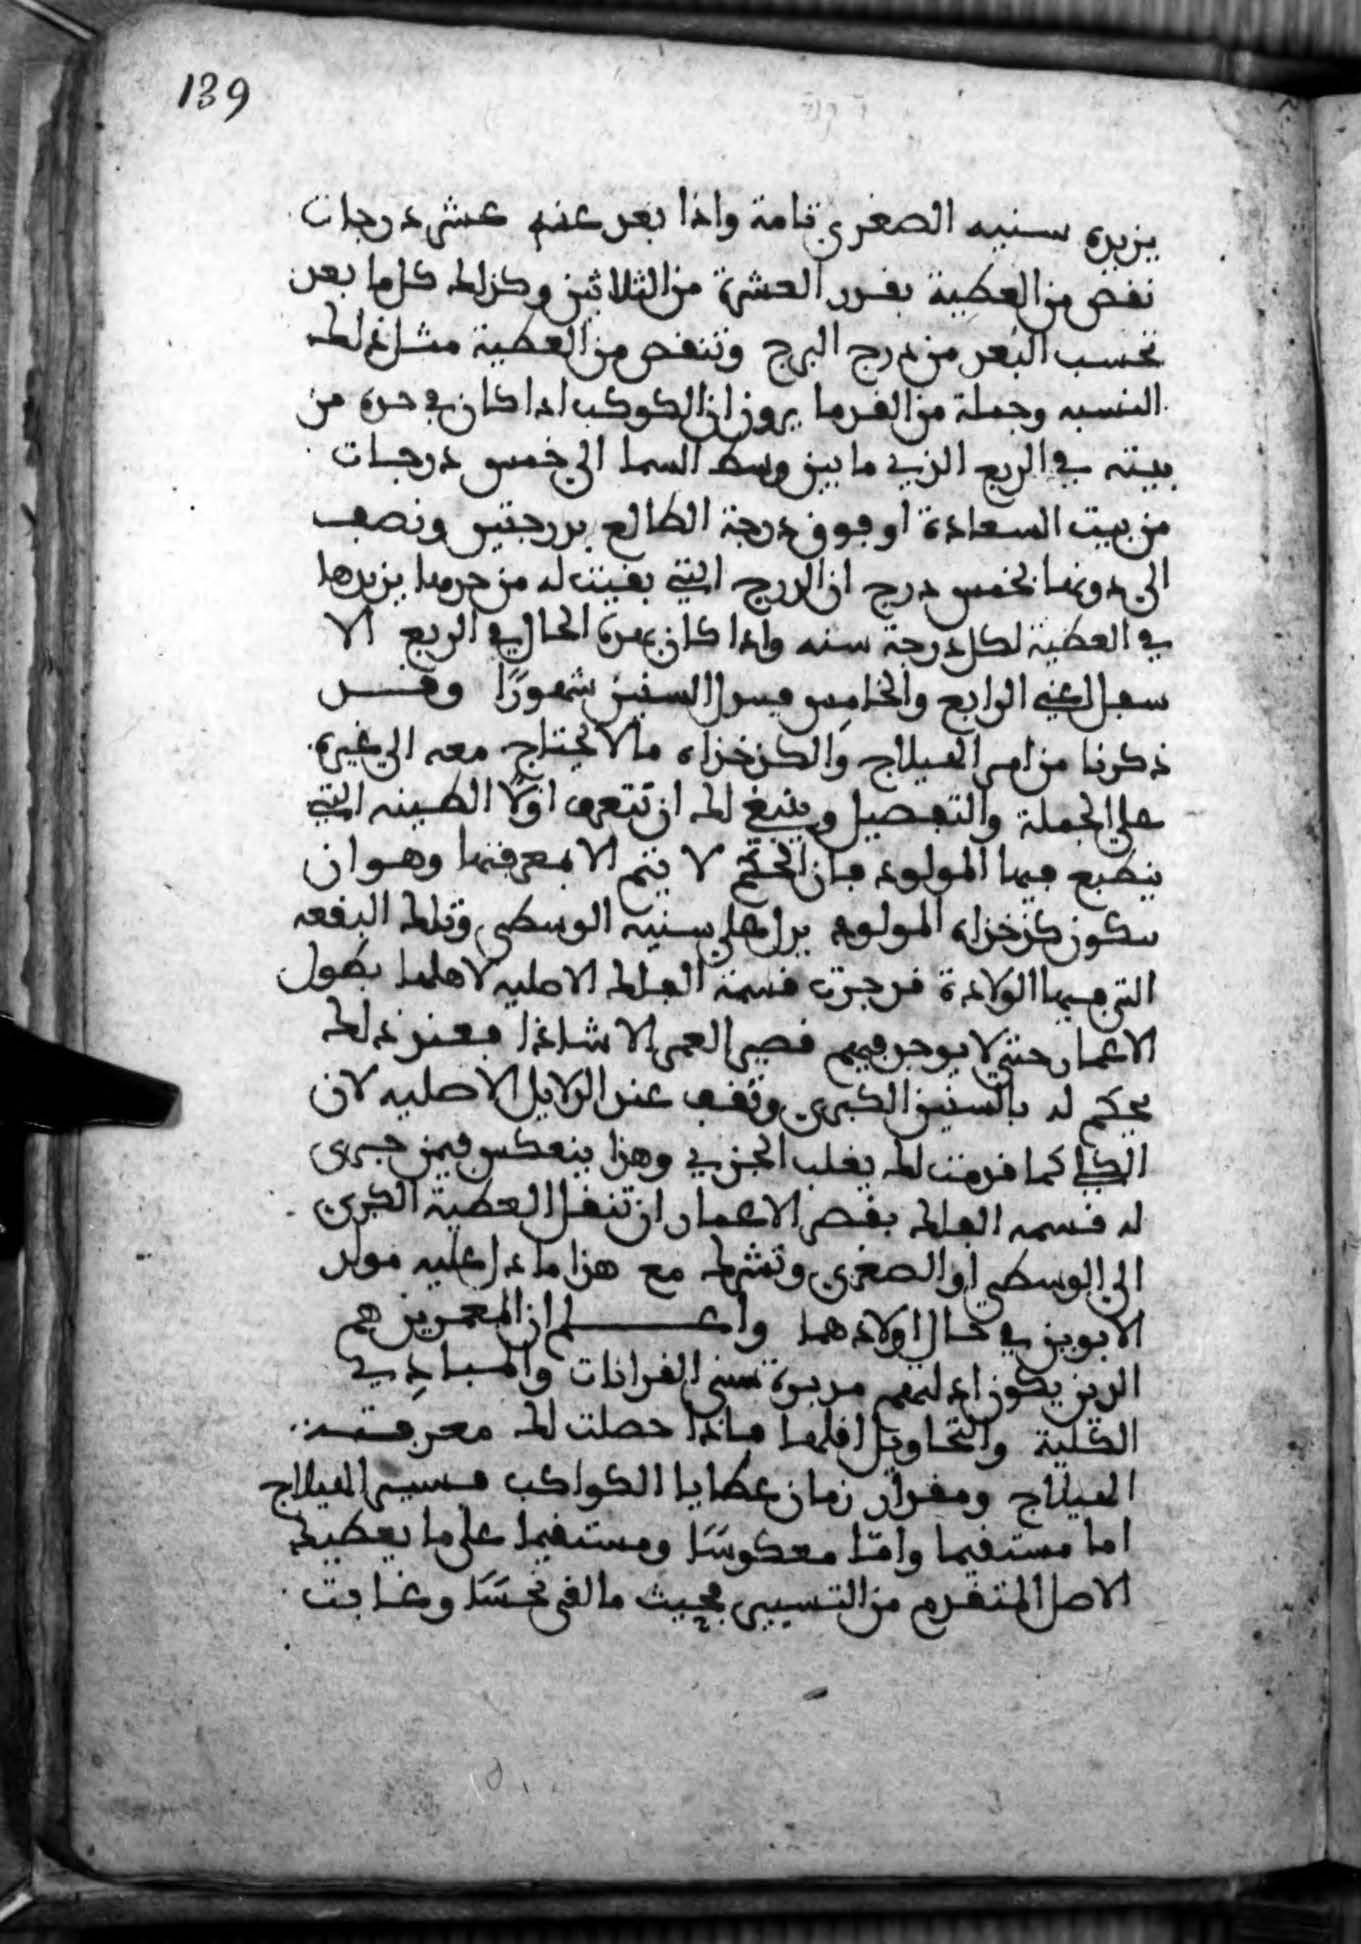 139
يزيده سنيه الصغرى تامة واذا بعد عنه عشر درجات
نقص من العطية بقدر العشرة من الثلاثين وكذلك كل ما بعد
تحسب البعد من درج البرج وتنقص من العطية مثل ذلك
النسبه وجملة من القدما يرون ان الكوكب اذا كان في حده من
بيته في الربع الذي ما بين وسط السما الى خمس درجات
من بيت السعادة او فوق درجة الطالع بدرجتين ونصف
الى دونها بخمس درج ان الدرج التي بقيت له من حدها يزيدها
في العطية لكل درجة سنه واذا كان بهذه الحال في الربع الا
سفل اعني الرابع والخامس فبدل السنين شهورًا وقد
ذكرنا من امر الهيلاج والكدخذاه ما لا يحتاج معه الى غيره
على الجملة والتفصيل وينبغي لك ان تتعرف اولًا الطينه التي
ينطبع فيها المولود فان الحكم لا يتم الا بمعرفتها وهو ان
يكون كدخذاه المولود يدل على سنيه الوسطى وتلك البقعه
التي فيها الولادة قد جرت قسمة الفلك الاصليه لاهلها بطول
الاعمار حتى لا يوجد فيهم قصير العمر الا شاذا فعند ذلك
يحكم له بالسنين الكبرى وتقف عند الدلايل الاصليه لان
الكلي كما قدمت لك يغلب الجزءي وهذا ينعكس فيمن جرى
له قسمه الفلك بقصر الاعمار ان تنقل العطية الكبرى
الى الوسطى او الصغرى وتشرك مع هذا ما دل عليه مولد
الابوين في حال اولادهما واعلم ان المعمرين هم
الذين يكون ادلتهم مدبرة سني القرانات والمبادي
الكلية والتحاويل اقلها فاذا حصلت لك معرفة
الهيلاج ومقدار زمان عطايا الكواكب فسير الهيلاج
اما مستقيما واما معكوسًا ومستقيما على ما يعطيك
الاصل المتقدم من التسيير فحيث ما لقى نحسًا وغابت